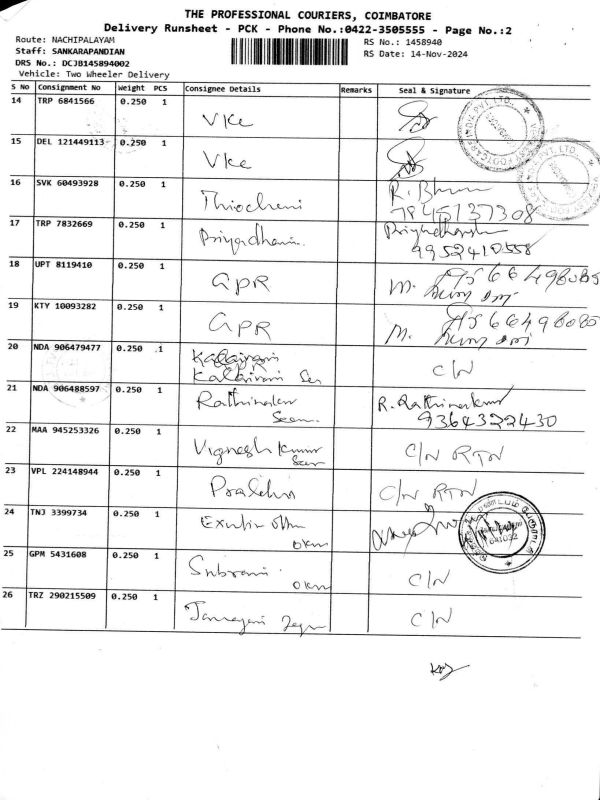 THE PROFESSIONAL COURIERS, COIMBATORE
Delivery Runsheet - PCK - Phone No.:0422-3505555 - Page No.:2
Route: NACHIPALAYAM
RS No.: 1458940
Staff: SANKARAPANDIAN
RS Date: 14-Nov-2024
DRS No.: DCJB145894002
Vehicle: Two Wheeler Delivery
S No Consignment No Weight PCS Consignee Details Remarks Seal & Signature
14 TRP 6841566 0.250 1 VKC
15 DEL 121449113 0.250 1 VKC
16 SVK 60493928 0.250 1 Thiocheni R.
7845137308
17 TRP 7832669 0.250 1 Priyadharsini
9952410558
18 UPT 8119410 0.250 1 GPR M.
19 KTY 10093282 0.250 1 GPR M.
20 NDA 906479477 0.250 1 Kalairani
Kalairani C/N
21 NDA 906488597 0.250 1 R. Rathinakumar
9364322430
22 MAA 945253326 0.250 1 Vignesh Kumar C/N RTN
23 VPL 224148944 0.250 1 C/N RTN
24 TNJ 3399734 0.250 1
OKM
641032
25 GPM 5431608 0.250 1 Subrani C/N
OKM
26 TRZ 290215509 0.250 1 C/N